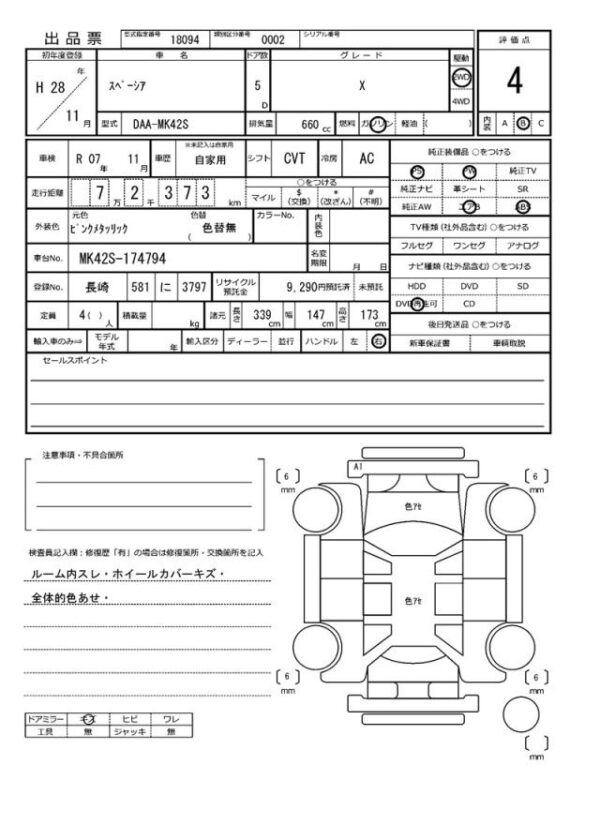 出品票 型式指定番号 18094 類別区分番号 0002 シリアル番号
評価点
初年度登録 車名 ドア数 グレード 駆動
H 28 年 11 月 スペーシア 5 D X 2WD 4WD
4
型式 DAA-MK42S 排気量 660 cc 燃料 ガソリン 軽油 ( )
内装 A B C
車検 R 07 年 11 月 車歴 ※未記入は自家用 自家用 シフト CVT 冷房 AC
純正装備品 ○をつける
PS PW 純正TV
純正ナビ 革シート SR
純正AW エアB ABS
走行距離 7 万 2 千 3 7 3 km
○をつける
マイル $ (交換) * (改ざん) # (不明)
外装色 元色 ピンクメタリック 色替 ( 色替無 ) カラーNo. 内装色
TV種類 (社外品含む) ○をつける
フルセグ ワンセグ アナログ
車台No. MK42S-174794 名変期限 月 日
ナビ種類 (社外品含む) ○をつける
HDD DVD SD
DVD再生可 CD
登録No. 長崎 581 に 3797 リサイクル預託金 9,290円預託済 未預託
定員 4 ( ) 人 積載量 kg 諸元 長さ 339 cm 幅 147 cm 高さ 173 cm
後日発送品 ○をつける
新車保証書 車輌取説
輸入車のみ⇒ モデル年式 年 輸入区分 ディーラー 並行 ハンドル 左 右
セールスポイント
注意事項・不具合箇所
検査員記入欄:修復歴「有」の場合は修復箇所・交換箇所を記入
ルーム内スレ・ホイールカバーキズ・
全体的色あせ・
ドアミラー キズ ヒビ ワレ
工具 無 ジャッキ 無
A1
6
mm
6
mm
色アセ
色アセ
6
mm
6
mm
mm